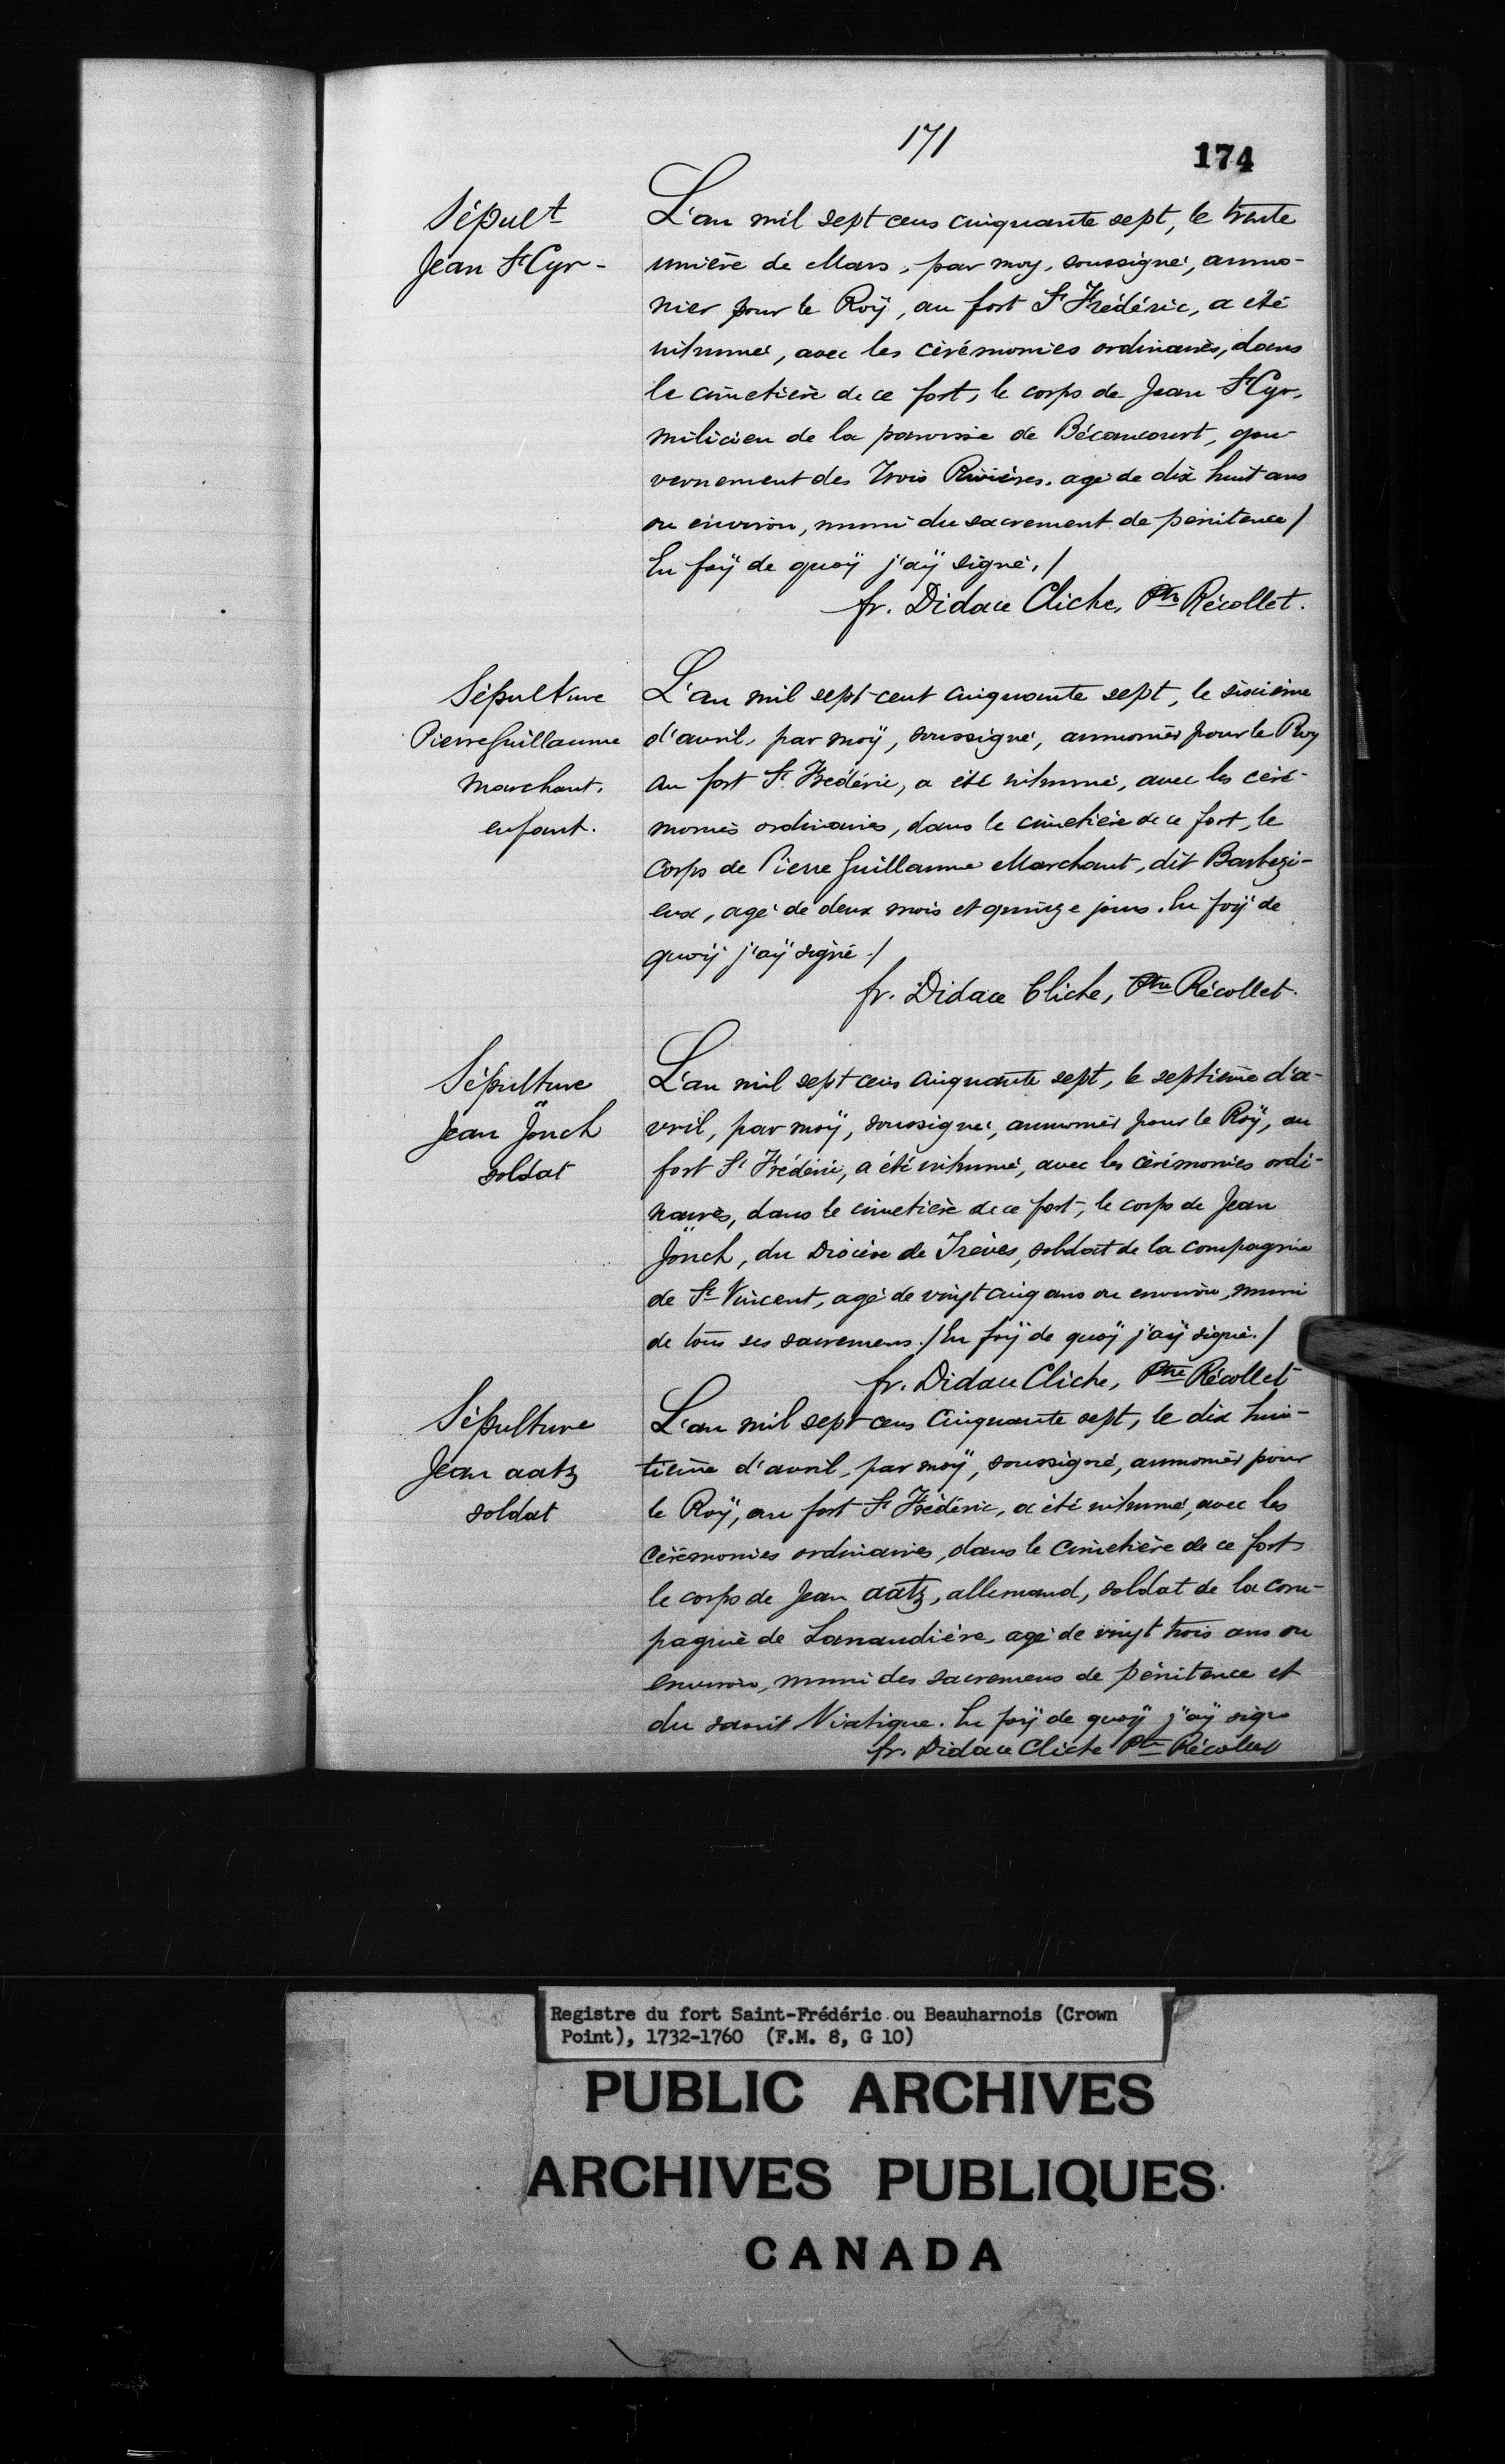 171
174
Sépult
Jean St Cyr -
L'an mil sept cens cinquante sept, le trente
unième de Mars, par moy, soussigné, aumo-
nier pour le Roÿ, au fort St Frédéric, a été
inhumé, avec les cérémonies ordinaires, dans
le cimetière de ce fort, le corps de Jean St Cyr,
milicien de la paroisse de Bécancourt, gou-
vernement des Trois Rivières, agé de dix huit ans
ou environ, muni du sacrement de pénitence /
En foÿ de quoÿ j'aÿ signé, /
fr. Didace Cliche, Ptre Récollet.
Sépulture
Pierre Guillaume
Marchant.
enfant.
L'an mil sept-cent cinquante sept, le sixième
d'avril, par moÿ, soussigné, aumonier pour le Roy
au fort St Frédéric, a été inhumé, avec les céré-
monies ordinaires, dans le cimetière de ce fort, le
corps de Pierre Guillaume Marchant, dit Barbezi-
eux, agé de deux mois et quinze jours. En foÿ de
quoÿ j'aÿ signé ./
fr. Didace Cliche, Ptre Récollet.
Sépulture
Jean Jönch
soldat
L'an mil sept cens cinquante sept, le septième d'a-
vril, par moÿ, soussigné, aumonier pour le Roÿ, au
fort St Frédéric, a été inhumé, avec les cérémonies ordi-
naires, dans le cimetière de ce fort, le corps de Jean
Jönch, du Diocèse de Trèves, soldat de la compagnie
de St Vincent, agé de vingt cinq ans ou environ, muni
de tous ses sacremens ./ En foÿ de quoÿ j'aÿ signé ./
fr. Didace Cliche, Ptre Récollet
Sépulture
Jean aatz
soldat
L'an mil sept cens cinquante sept, le dix hui-
tième d'avril, par moÿ, soussigné, aumonier pour
le Roÿ, au fort St Frédéric, a été inhumé, avec les
cérémonies ordinaires, dans le cimetière de ce fort,
le corps de Jean aatz, allemand, soldat de la com-
pagnie de Lanaudière, agé de vingt trois ans ou
environ, muni des sacremens de pénitence et
du saint Viatique. En foÿ de quoÿ j'aÿ signé
fr. Didace Cliche Ptre Récollet
Registre du fort Saint-Frédéric ou Beauharnois (Crown
Point), 1732-1760 (F.M. 8, G 10)
PUBLIC ARCHIVES
ARCHIVES PUBLIQUES
CANADA